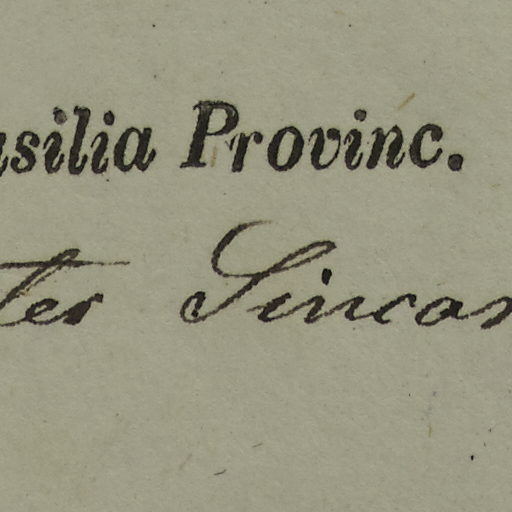 asilia Provinc.
ter Sincor